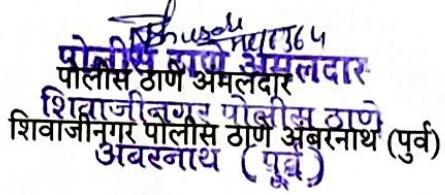 पोलीस ठाणे अमलदार
पोलीस ठाणे अमलदार
शिवाजीनगर पोलीस ठाणे
शिवाजीनगर पोलीस ठाणे अंबरनाथ (पुर्व)
अंबरनाथ (पूर्व)